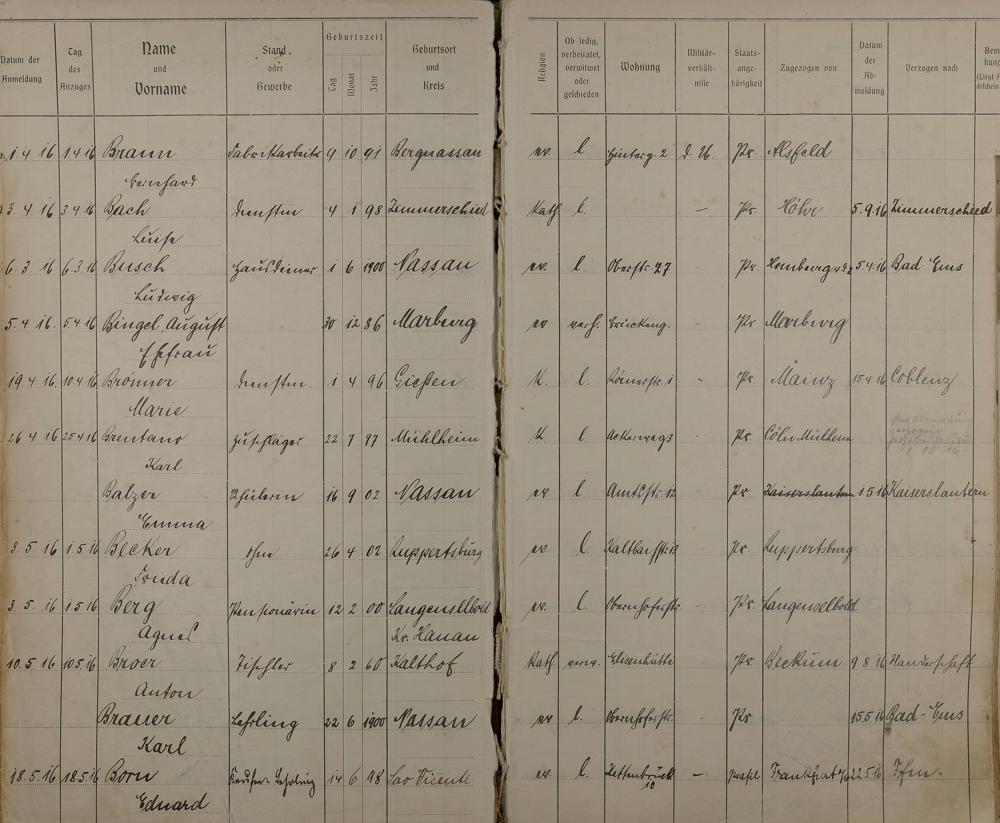 Datum der Anmeldung
Tag des Anzuges
Name und Vorname
Stand oder Gewerbe
Geburtszeit
Tag Monat Jahr
Geburtsort und Kreis
Religion
Ob ledig, verheiratet, verwitwet oder geschieden
Wohnung
Militär-verhält-nisse
Staats-ange-hörigkeit
Zugezogen von
Datum der Ab-meldung
Verzogen nach
1 4 16 1 4 16 Braun Fabrikarbeiter 9 10 91 Bergnassau ev. l. Hinterg 2 d. U. Pr. Alsfeld
Bernhard
3 4 16 3 4 16 Bach Dienstm. 4 1 98 Zimmerschied Kath l. – Pr. Höhr 5.9.16 Zimmerschied
Luise
6. 3 16 6.3 16 Busch Hausdiener 1 6 1900 Nassau ev. l. Oberstr. 27 Pr. Homburg v.d. 5.4.16 Bad Ems
Ludwig
5. 4 16. 5.4. 16 Bingel, August 30 12 86 Marburg ev verh. Brückeng. – Pr Marburg
Ehefrau
19 4 16 10 4 16 Brönner Dienstm. 1 4 96 Gießen K. l. Römerstr. 1 – Pr. Mainz 15 4 16 Coblenz
Marie
26 4 16 25 4 16 Brentano Zuschläger 22 7 97 Mühlheim K l Ackerweg 3 Pr. Cöln Mülheim
1. 10. 16.
Karl
Balzer Schülerin 16 9 02 Nassau ev. l. Amtsstr. 12 Pr. Kaiserslautern 1 5 16 Kaiserslautern
Emma
3. 5. 16 1. 5. 16 Becker ohne 26 4 02 Ruppertsburg ev. l. Kaltbachstr. Pr Ruppertsburg
Frieda
3. 5. 16 1 5 16 Berg Pensionärin 12 2 00 Langenselbold ev. l. Obernhoferstr Pr. Langenselbold
Agnes Kr. Hanau
10. 5 16 10.5 16 Broer Tischler 8 2 60 Kalthof Kath verw. Elisenhütte Pr. Beckum 9 8. 16 Wanderschaft
Anton
Brauer Lehrling 22 6 1900 Nassau ev l. Obernhoferstr. Pr 15.5 16 Bad-Ems
Karl
18. 5. 16 18.5. 16 Born Kaufm. Lehrling 14 6 98 Sao Vicente ev. l. Kettenbrück – Frankfurt a/M 22 5 16
Eduard 10